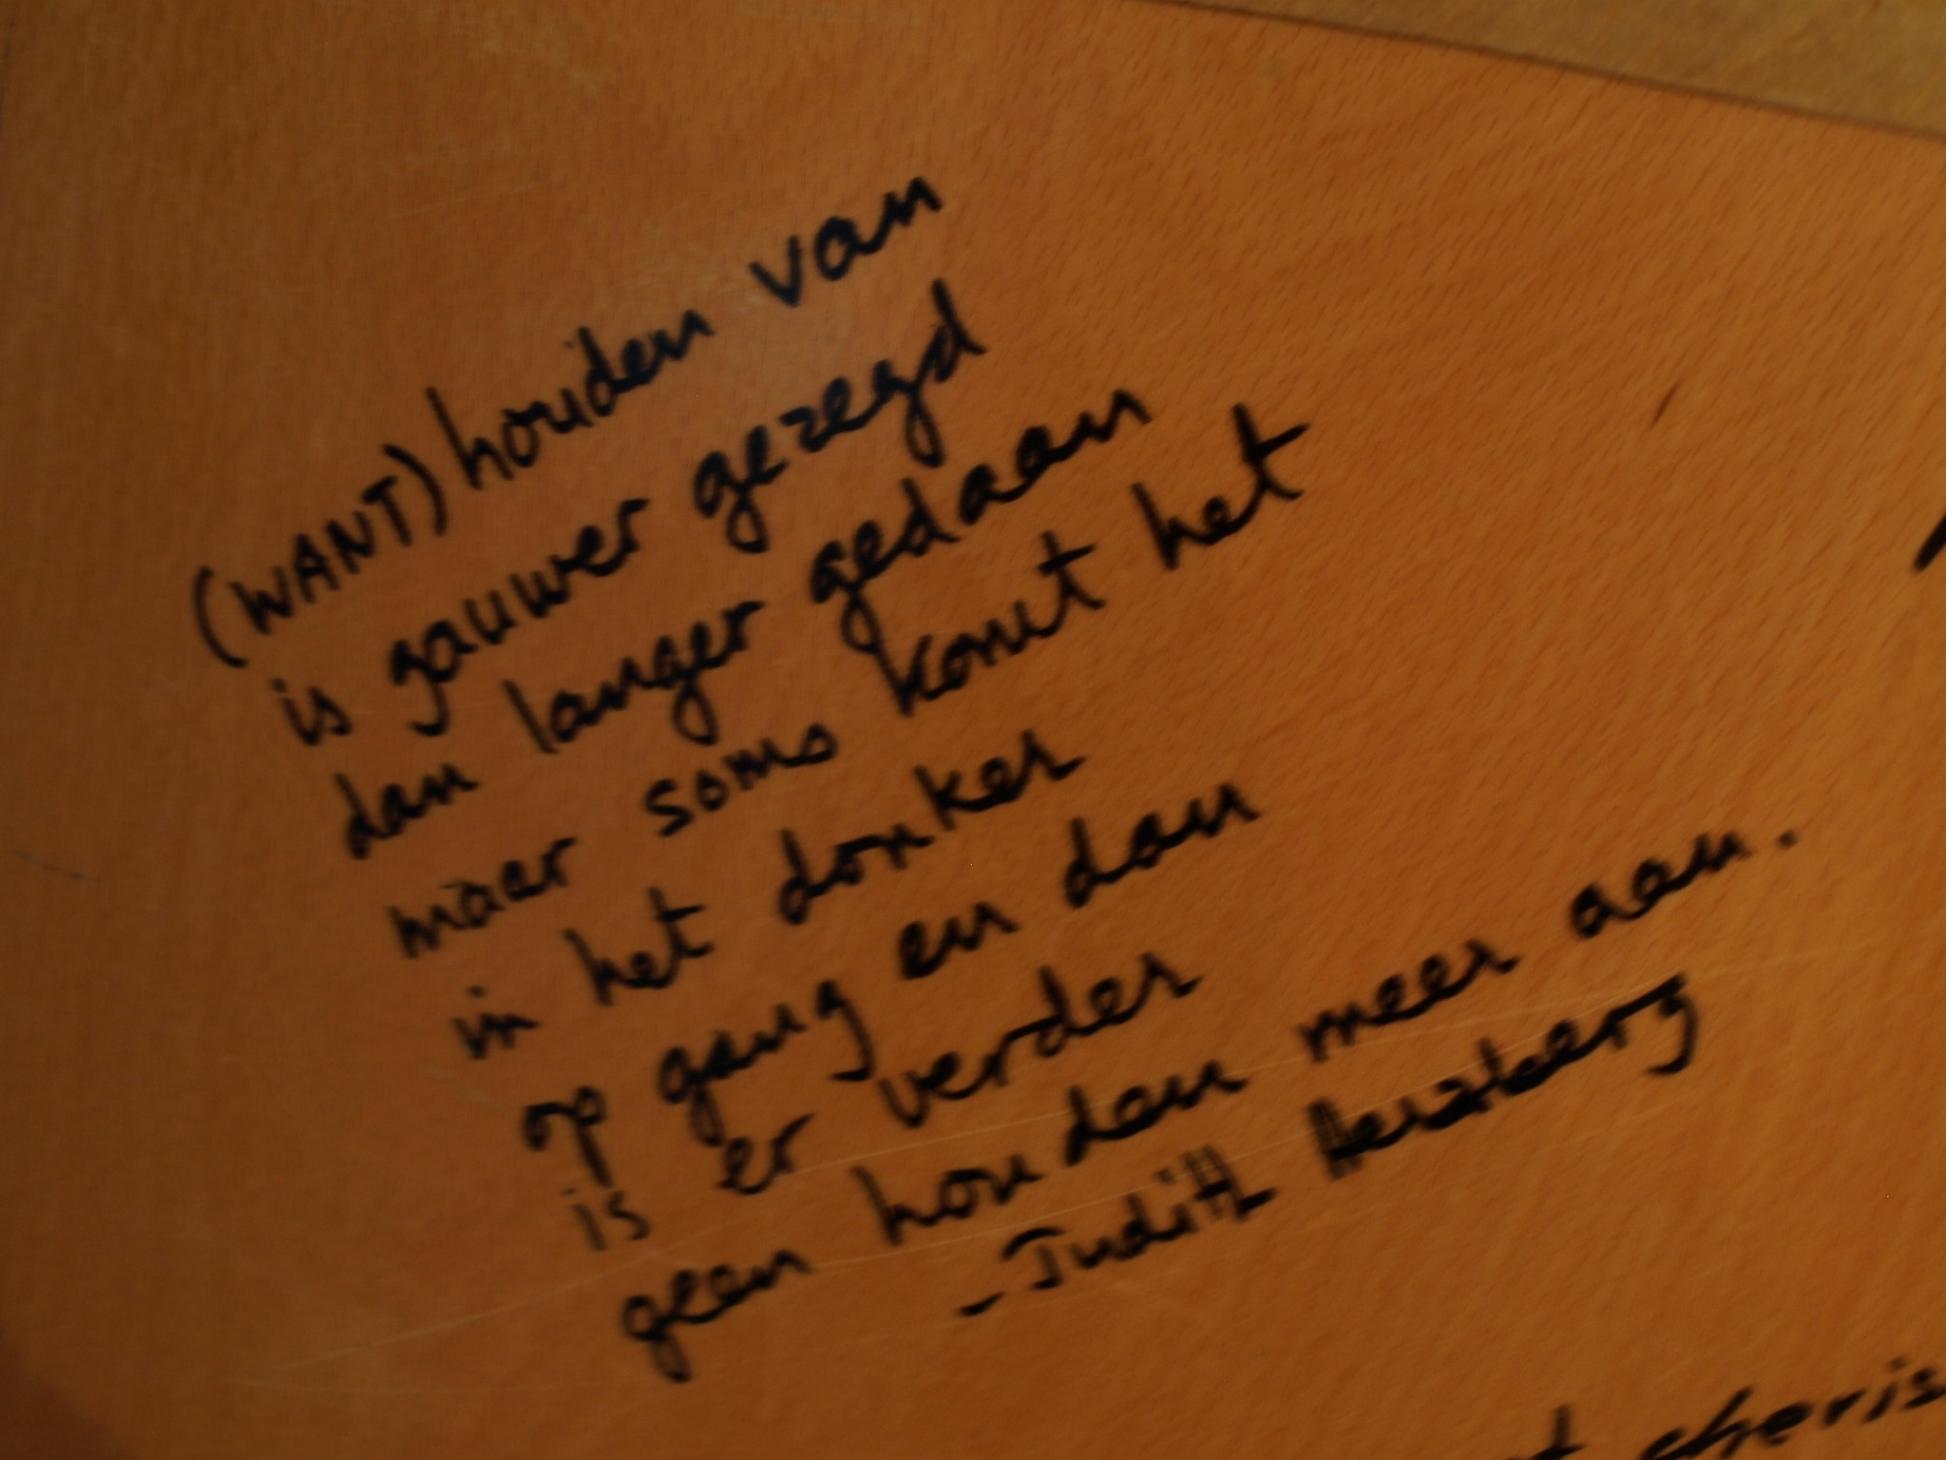 (WANT) houden van
is gauwer gezegd
dan langer gedaan
maar soms komt het
in het donker
op gang en dan
is er verder
geen houden meer aan.
- Judith Herzberg
cheris